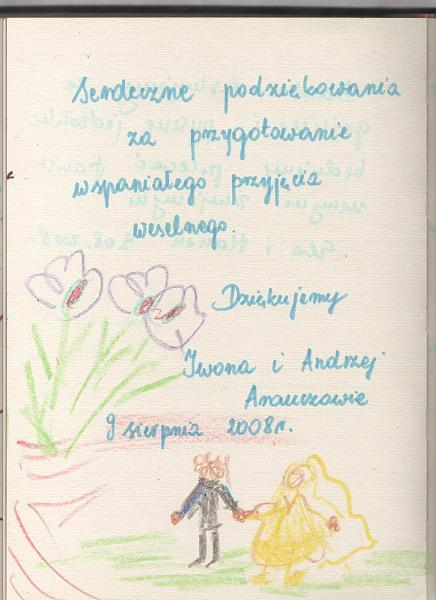 Serdeczne podziękowania
za przygotowanie
wspaniałego przyjęcia
weselnego.
Dziękujemy
Iwona i Andrzej
9 sierpnia 2008r.